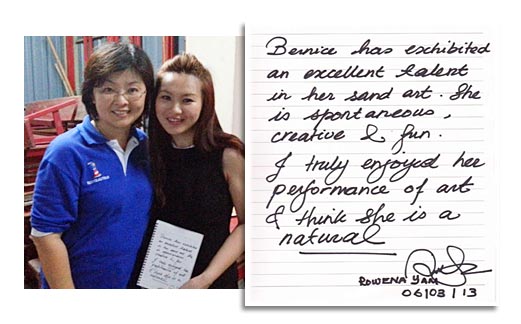 Bernice has exhibited
an excellent talent
in her sand art. She
is spontaneous,
creative & fun.
I truly enjoyed her
performance of art
& think she is a
natural
ROWENA YAM
06/03/13